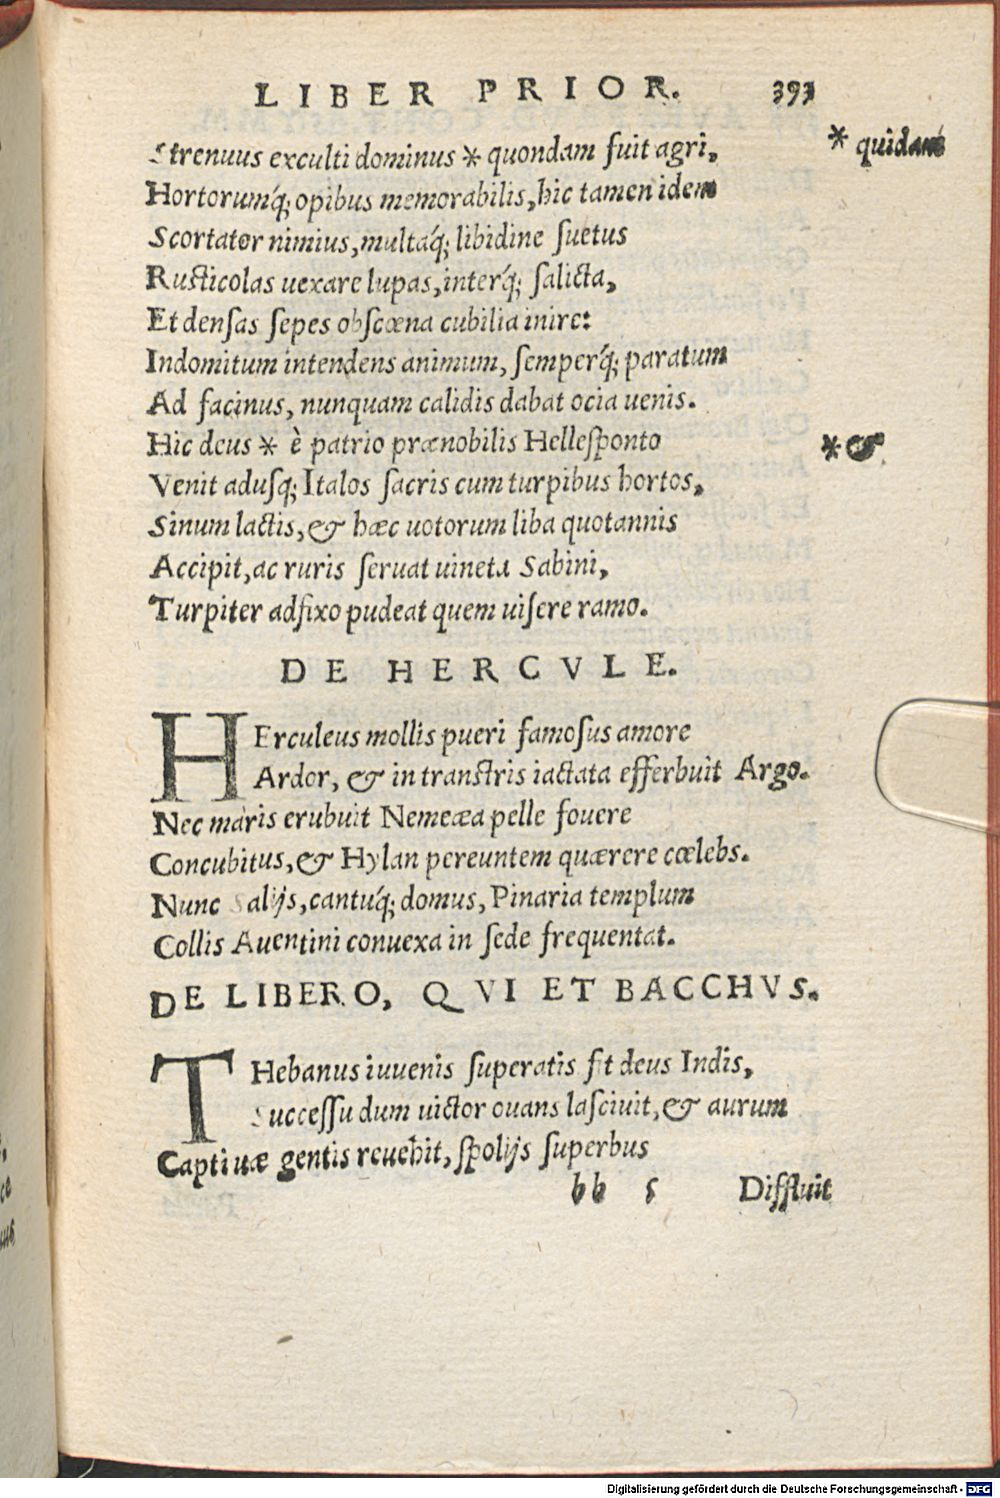 LIBER PRIOR. 393
Strenuus exculti dominus * quondam fuit agri, * quidam
Hortorumq́; opibus memorabilis, hic tamen idem
Scortator nimius, multaq́; libidine ſuetus
Ruſticolas uexare lupas, interq́; ſalicta,
Et denſas ſepes obſcœna cubilia inire:
Indomitum intendens animum, ſemperq́; paratum
Ad facinus, nunquam calidis dabat ocia uenis.
Hic deus * è patrio prænobilis Helleſponto *
Venit aduſq; Italos ſacris cum turpibus hortos,
Sinum lactis, & hæc uotorum liba quotannis
Accipit, ac ruris ſeruat uineta Sabini,
Turpiter adfixo pudeat quem uiſere ramo.
DE HERCVLE.
HErculeus mollis pueri famoſus amore
Ardor, & in tranſtris iactata efferbuit Argo.
Nec maris erubuit Nemeæa pelle fouere
Concubitus, & Hylan pereuntem quærere cœlebs.
Nunc Salijs, cantuq́; domus, Pinaria templum
Collis Auentini conuexa in ſede frequentat.
DE LIBERO, QVI ET BACCHVS.
THebanus iuuenis ſuperatis fit deus Indis,
Succeſſu dum uictor ouans laſciuit, & aurum
Captiuæ gentis reuehit, ſpolijs ſuperbus
bb 5 Diffluit
Digitalisierung gefördert durch die Deutsche Forschungsgemeinschaft - DFG